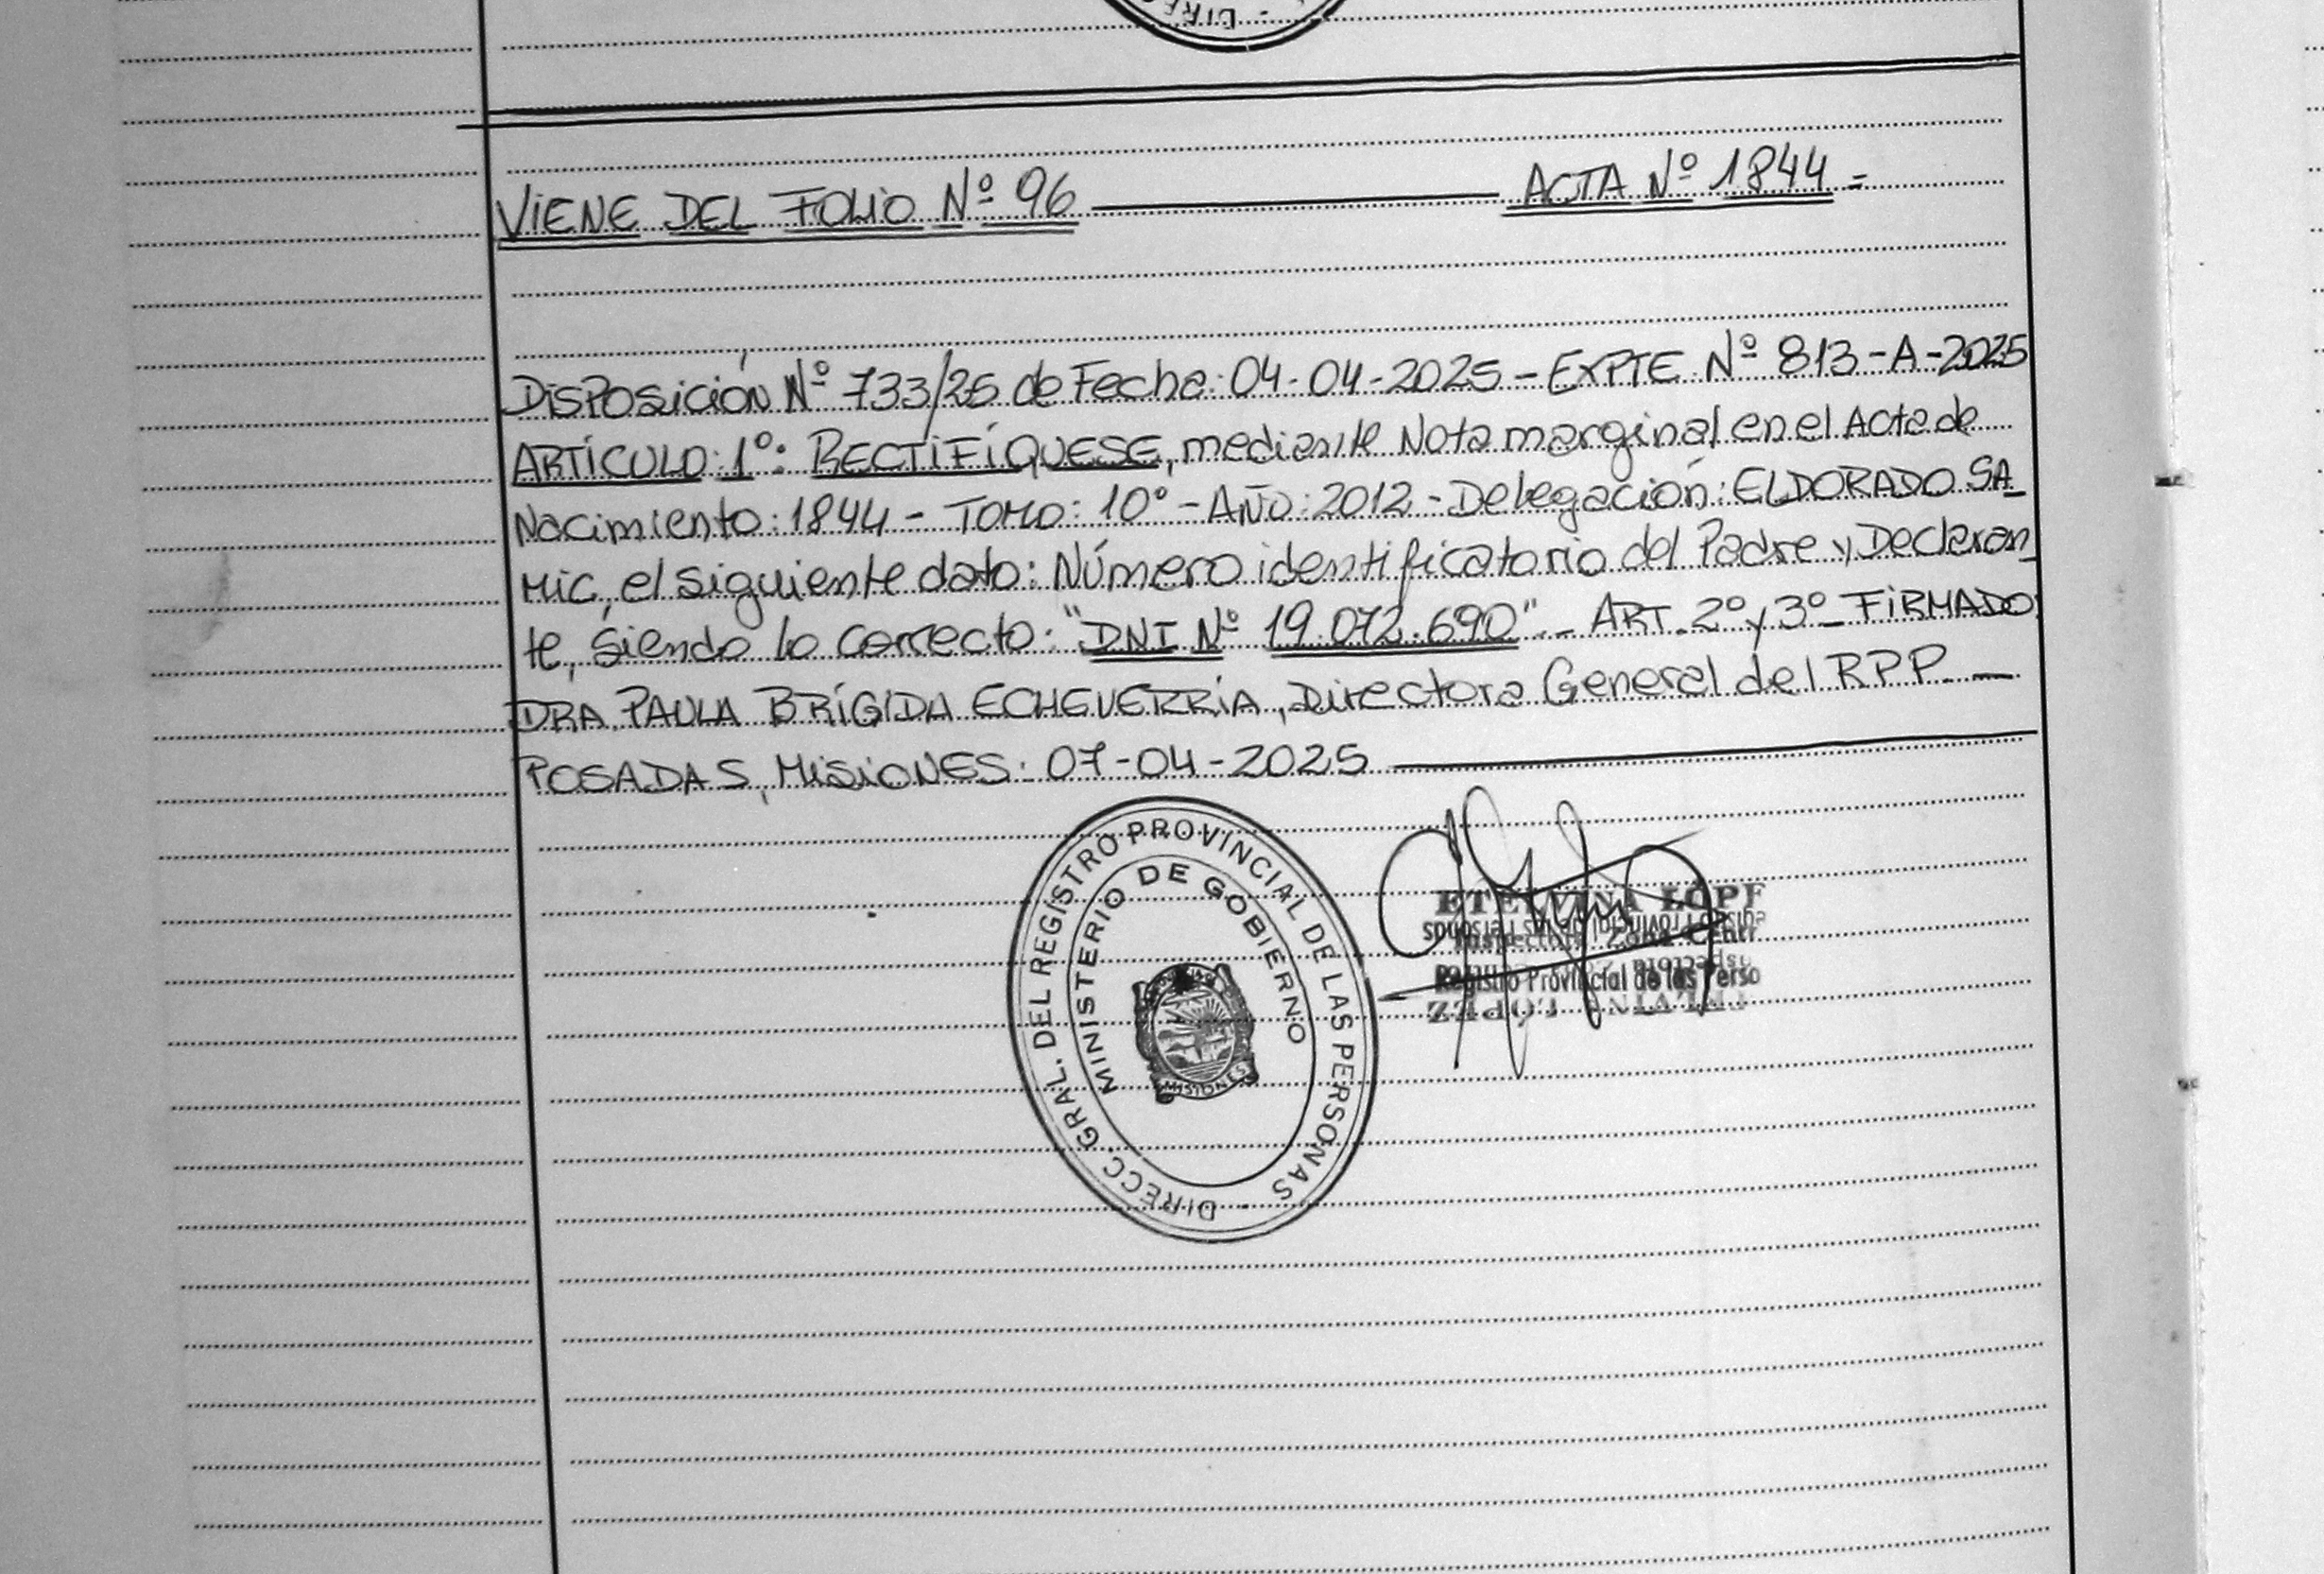 VIENE DEL FOLIO Nº 96 ACTA Nº 1844 =
DISPOSICIÓN Nº 733/25 de Fecha: 04-04-2025 - EXPTE Nº 813-A-2025
ARTÍCULO: 1º: RECTIFÍQUESE, mediante Nota marginal en el Acta de
Nacimiento: 1844 - TOMO: 10º - AÑO: 2012 - Delegación: ELDORADO SA_
MIC, el siguiente dato: Número identificatorio del Padre y Declaran_
te, siendo lo correcto: "DNI Nº 19.072.690" - ART. 2º y 3º - FIRMADO:
DRA. PAULA BRÍGIDA ECHEVERRÍA, Directora General del RPP. —
POSADAS, MISIONES: 07-04-2025
DIRECC. GRAL. DEL REGISTRO PROVINCIAL DE LAS PERSONAS -
MINISTERIO DE GOBIERNO
MISIONES
ETELVINA LÓPE
Inspectora Zona Centr
Registro Provincial de las Perso